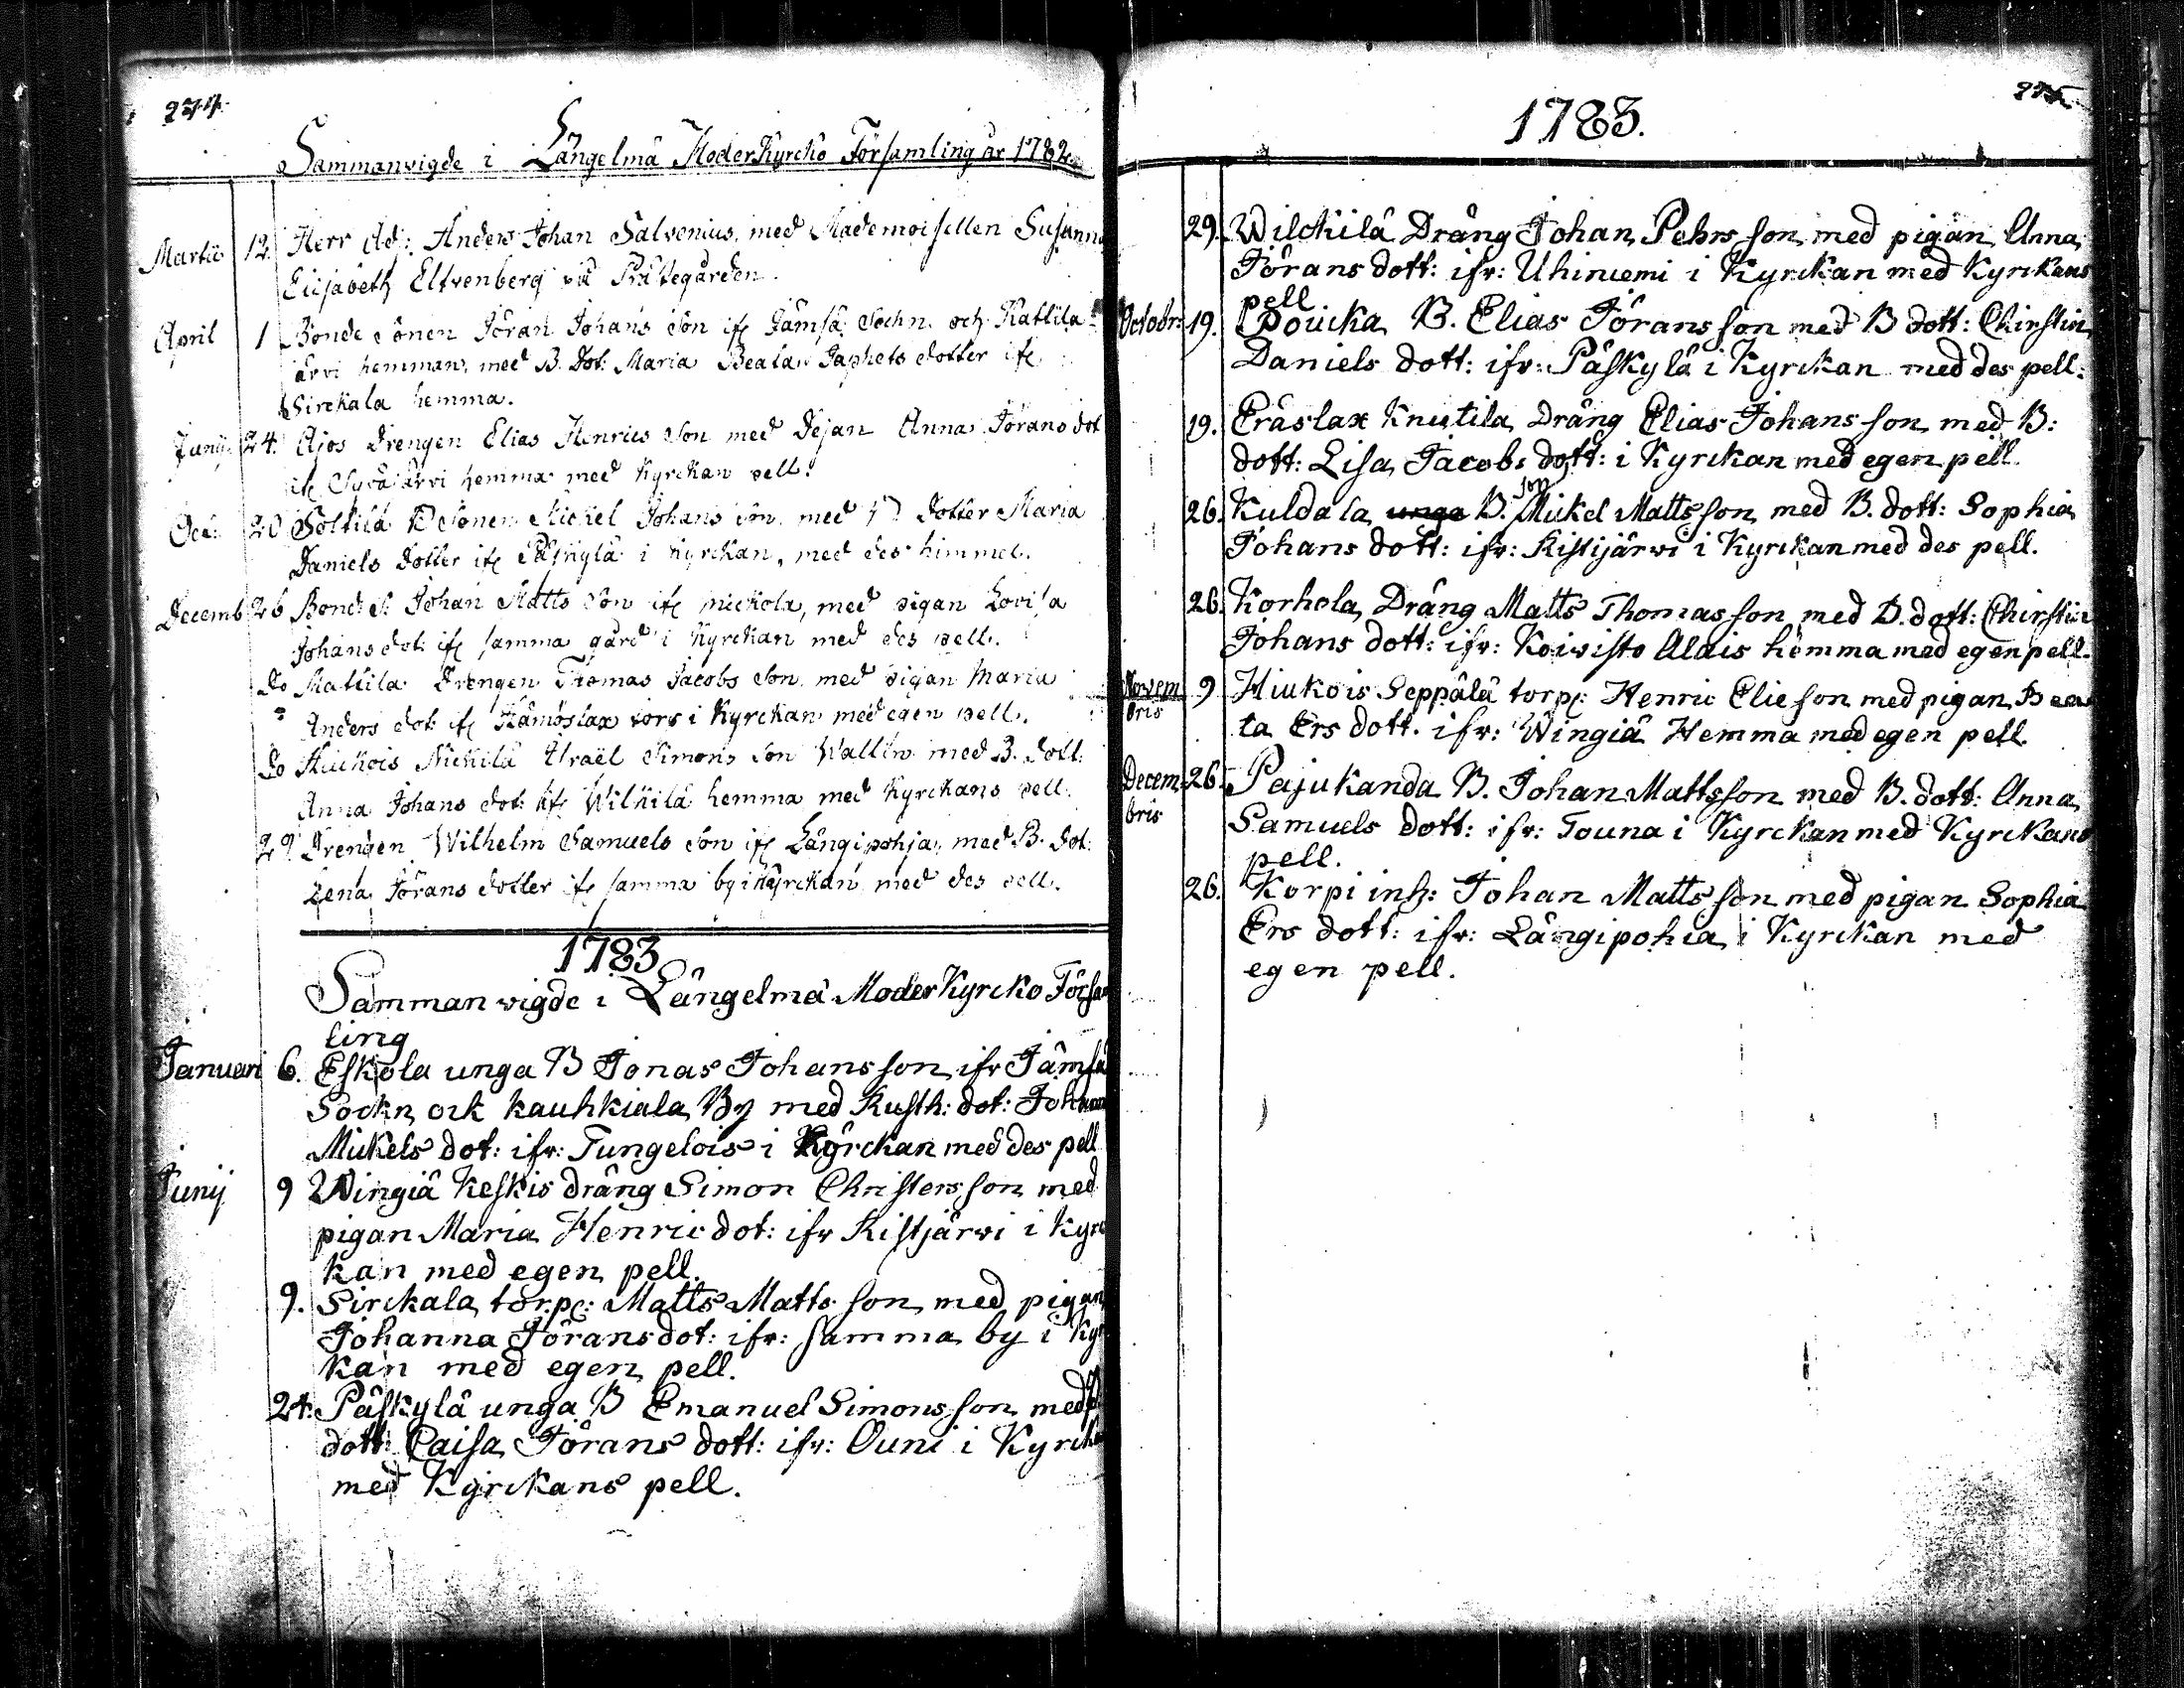 274.
Sammanvigde i Längelmä Moder Kyrcko Församling år 1782.
Martii 12. Herr Adj: Anders Johan Salvenius, med Mademoisellen Susanna
Elisabeth Elfvenberg på Prästegården.
April 1 Bonde Sönen Jöran Johans Son ifr Jämsä Sochn och Kattila-
ärvi hemman, med B. Dot: Maria Beata Japhets dotter ifr
Sirckala hemma.
Junij 24. Ajos Drengen Elias Henrics Son med Dejan Anna Jörans dot
ifr Syväjärvi hemma med Kyrckan pell.
Oct: 20 Soltila B Sönen Mickel Johans Son, med B Dotter Maria
Daniels Dotter ifr Päskylä i Kyrckan, med des himmel.
Decemb 26 Bond. S. Johan Matts Son ifr Mickola, med pigan Lovisa
Johans dot: ifr samma gård i Kyrckan med des pell.
Do Mattila Drengen Thomas Jacobs Son med pigan Maria
Anders dot: ifr Kämöslax torp i Kyrckan med egen pell.
Do Hiukois Nickilä Israël Simons Son Wallin med B. Dott:
Anna Johans dot: ifr Wilkilä hemma med Kyrckans pell.
29 Drengen Wilhelm Samuels Son ifr Längipohja, med B. Dot:
Lena Jörans dotter ifr samma by i Kyrckan med des pell.
1783
Samman vigde i Längelmä Moder Kyrcko Försam
ling
Januari 6. Eskola unga B Jonas Johans son ifr Jämsä
Sockn ock kauhkiala By med Rusth: dot: Johanna
Mickels dot: ifr: Tungelois i Kyrckan med des pell
Junij 9 Wingiä Keskis dräng Simon Christers son med
pigan Maria Henric dot: ifr Ristjärvi i Kyrc
kan med egen pell.
9. Sirckala torp: Matts Matts son med pigan
Johanna Jörans dot: ifr: samma by i Kyr
kan med egen pell.
24. Päskylä unga B Emanuel Simons son med B
dott: Caisa Jörans dott: ifr: Ouni i Kyrcka
med Kyrckans pell.
275
1783.
29. Wilckilä Dräng Johan Pehrs son med pigan Anna
Jörans dott: ifr: Uhiniemi i Kyrckan med Kyrckans
pell
Octobr: 19. Poucka B. Elias Jörans son med B dott: Chirstin
Daniels dott: ifr: Päskylä i Kyrckan med des pell.
19. Eräslax Knutila Dräng Elias Johans son med B:
dott: Lisa Jacobs dott: i Kyrckan med egen pell.
26. Kuldala unga B. son Mickel Matts son med B. dott: Sophia
Johans dott: ifr: Ristijärvi i Kyrckan med des pell.
26. Korhola Dräng Matts Thomas son med D. dott: Chirstin
Johans dott: ifr: Koivisto Alais hemma med egen pell.
Novem bris 9 Hiukois Seppälä torp: Henric Elie son med pigan Bea
ta Ers dott. ifr: Wingiä Hemma med egen pell.
Decem bris 26. Pajukanda B. Johan Matts son med B. dott: Anna
Samuels dott: ifr: Touna i Kyrckan med Kyrckans
pell.
26. Korpi inh: Johan Matts son med pigan Sophia
Ers dott: ifr: Längipohia i Kyrckan med
egen pell.